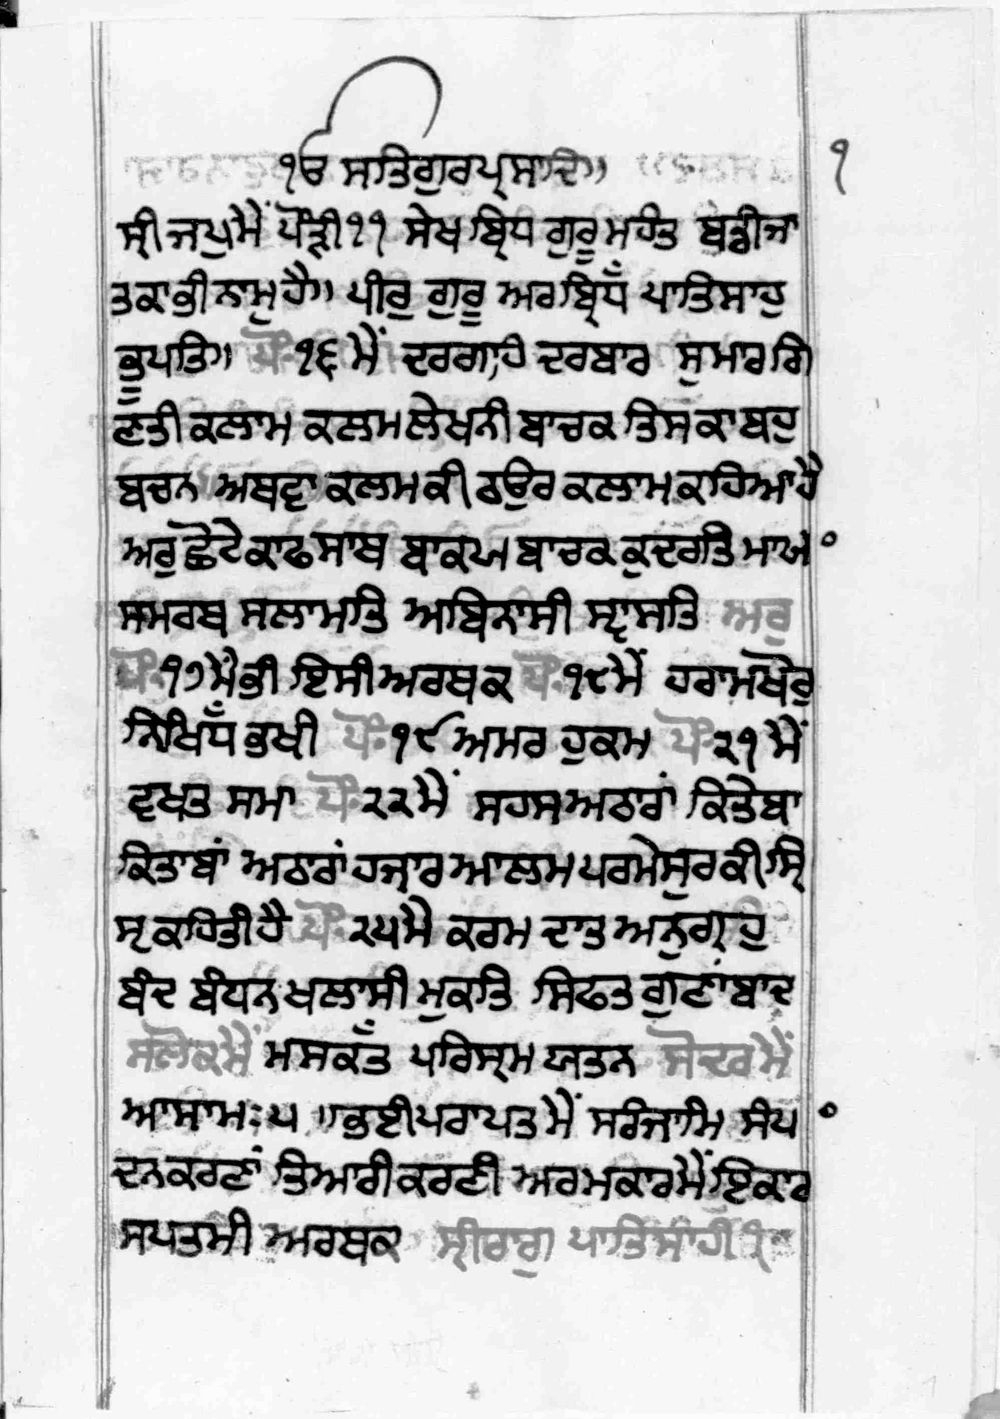 ੴ ਸਤਿਗੁਰਪ੍ਰਸਾਦਿ॥ ੧
ਸ੍ਰੀ ਜਪੁ ਮੈਂ ਪੌੜੀ ੧੧ ਸੇਖ ਬ੍ਰਿਧ ਗੁਰੂ ਮਹੰਤ
ਤਕਾ ਭੀ ਨਾਮੁ ਹੈ॥ ਪੀਰੁ ਗੁਰੂ ਅਰ ਬ੍ਰਿਧੱ ਪਾਤਿਸਾਹੁ
ਭੂਪਤਿ॥ ਪੌ: ੧੬ ਮੈਂ ਦਰਗਾਹਿ ਦਰਬਾਰ ਸੁਮਾਰ ਗਿ
ਣਤੀ ਕਲਾਮ ਕਲਮ ਲੇਖਨੀ ਬਾਚਕ ਤਿਸ ਕਾ ਬਹੁ
ਬਚਨ ਅਥਵਾ ਕਲਮ ਕੀ ਠਉਰ ਕਲਾਮ ਕਹਿਆ ਹੈ
ਅਰੁ ਛੋਟੇ ਕਾਫ ਸਾਥ ਬਾਕਯ ਬਾਚਕ ਕੁਦਰਤਿ ਮਾਯਾ
ਸਮਰਥ ਸਲਾਮਤਿ ਅਬਿਨਾਸੀ ਸ੍ਵਾਸਤਿ ਅਰੁ
ਪੌ: ੧੭ ਮੈ ਭੀ ਇਸੀ ਅਰਥਕ ਪੌ: ੧੮ ਮੇਂ ਹਰਾਮਖੋਰੁ
ਨਿਖਿਧੱ ਭਖੀ ਪੌ: ੧੯ ਅਮਰ ਹੁਕਮ ਪੌ: ੨੧ ਮੈਂ
ਵਖਤ ਸਮਾ ਪੌ: ੨੨ ਮੈਂ ਸਹਸ ਅਠਾਰਾਂ ਕਿਤੇਬਾ
ਕਿਤਾਬਾਂ ਅਠਾਰਾਂ ਹਜਾਰ ਆਲਮ ਪਰਮੇਸੁਰ ਕੀ ਸ੍ਰਿ
ਸ੍ਟ ਕਹਿਤੀ ਹੈ ਪੌ: ੨੫ ਮੈ ਕਰਮ ਦਾਤ ਅਨੁਗ੍ਰਹੁ
ਬੰਦ ਬੰਧਨ ਖਲਾਸੀ ਮੁਕਤਿ ਸਿਫਤ ਗੁਣਾਂਬਾਦ
ਸਲੋਕ ਮੈਂ ਮਸਕੱਤ ਪਰਿਸ੍ਰਮ ਯਤਨ ਸੋਦਰ ਮੇਂ
ਆਸਾ ਮ: ੫ ॥ ਭਈ ਪਰਾਪਤ ਮੈਂ ਸਰਿੰਜਾਮਿ ਸੰਪ
ਦਨ ਕਰਣਾਂ ਤਿਆਰੀ ਕਰਣੀ ਅਰ ਮਕਾਰ ਮੈਂ ਇਕਾਰ
ਸਪਤਮੀ ਅਰਥਕ ਸ੍ਰੀਰਾਗੁ ਪਾਤਿਸਾਹੀ ੧